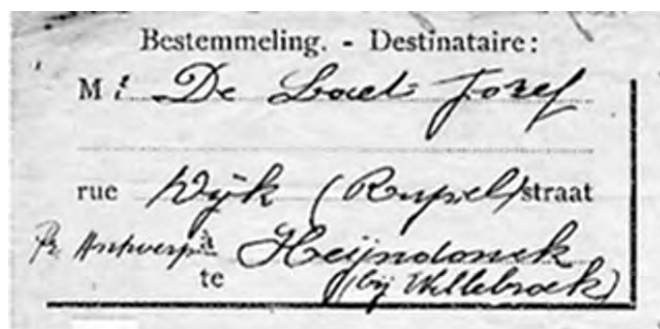 Bestemmeling. - Destinataire:
Mr De Baet Jozef
rue Wijk (Rupel)straat
Pr. Antwerp. à Heijndonck
te (bij Willebroek)